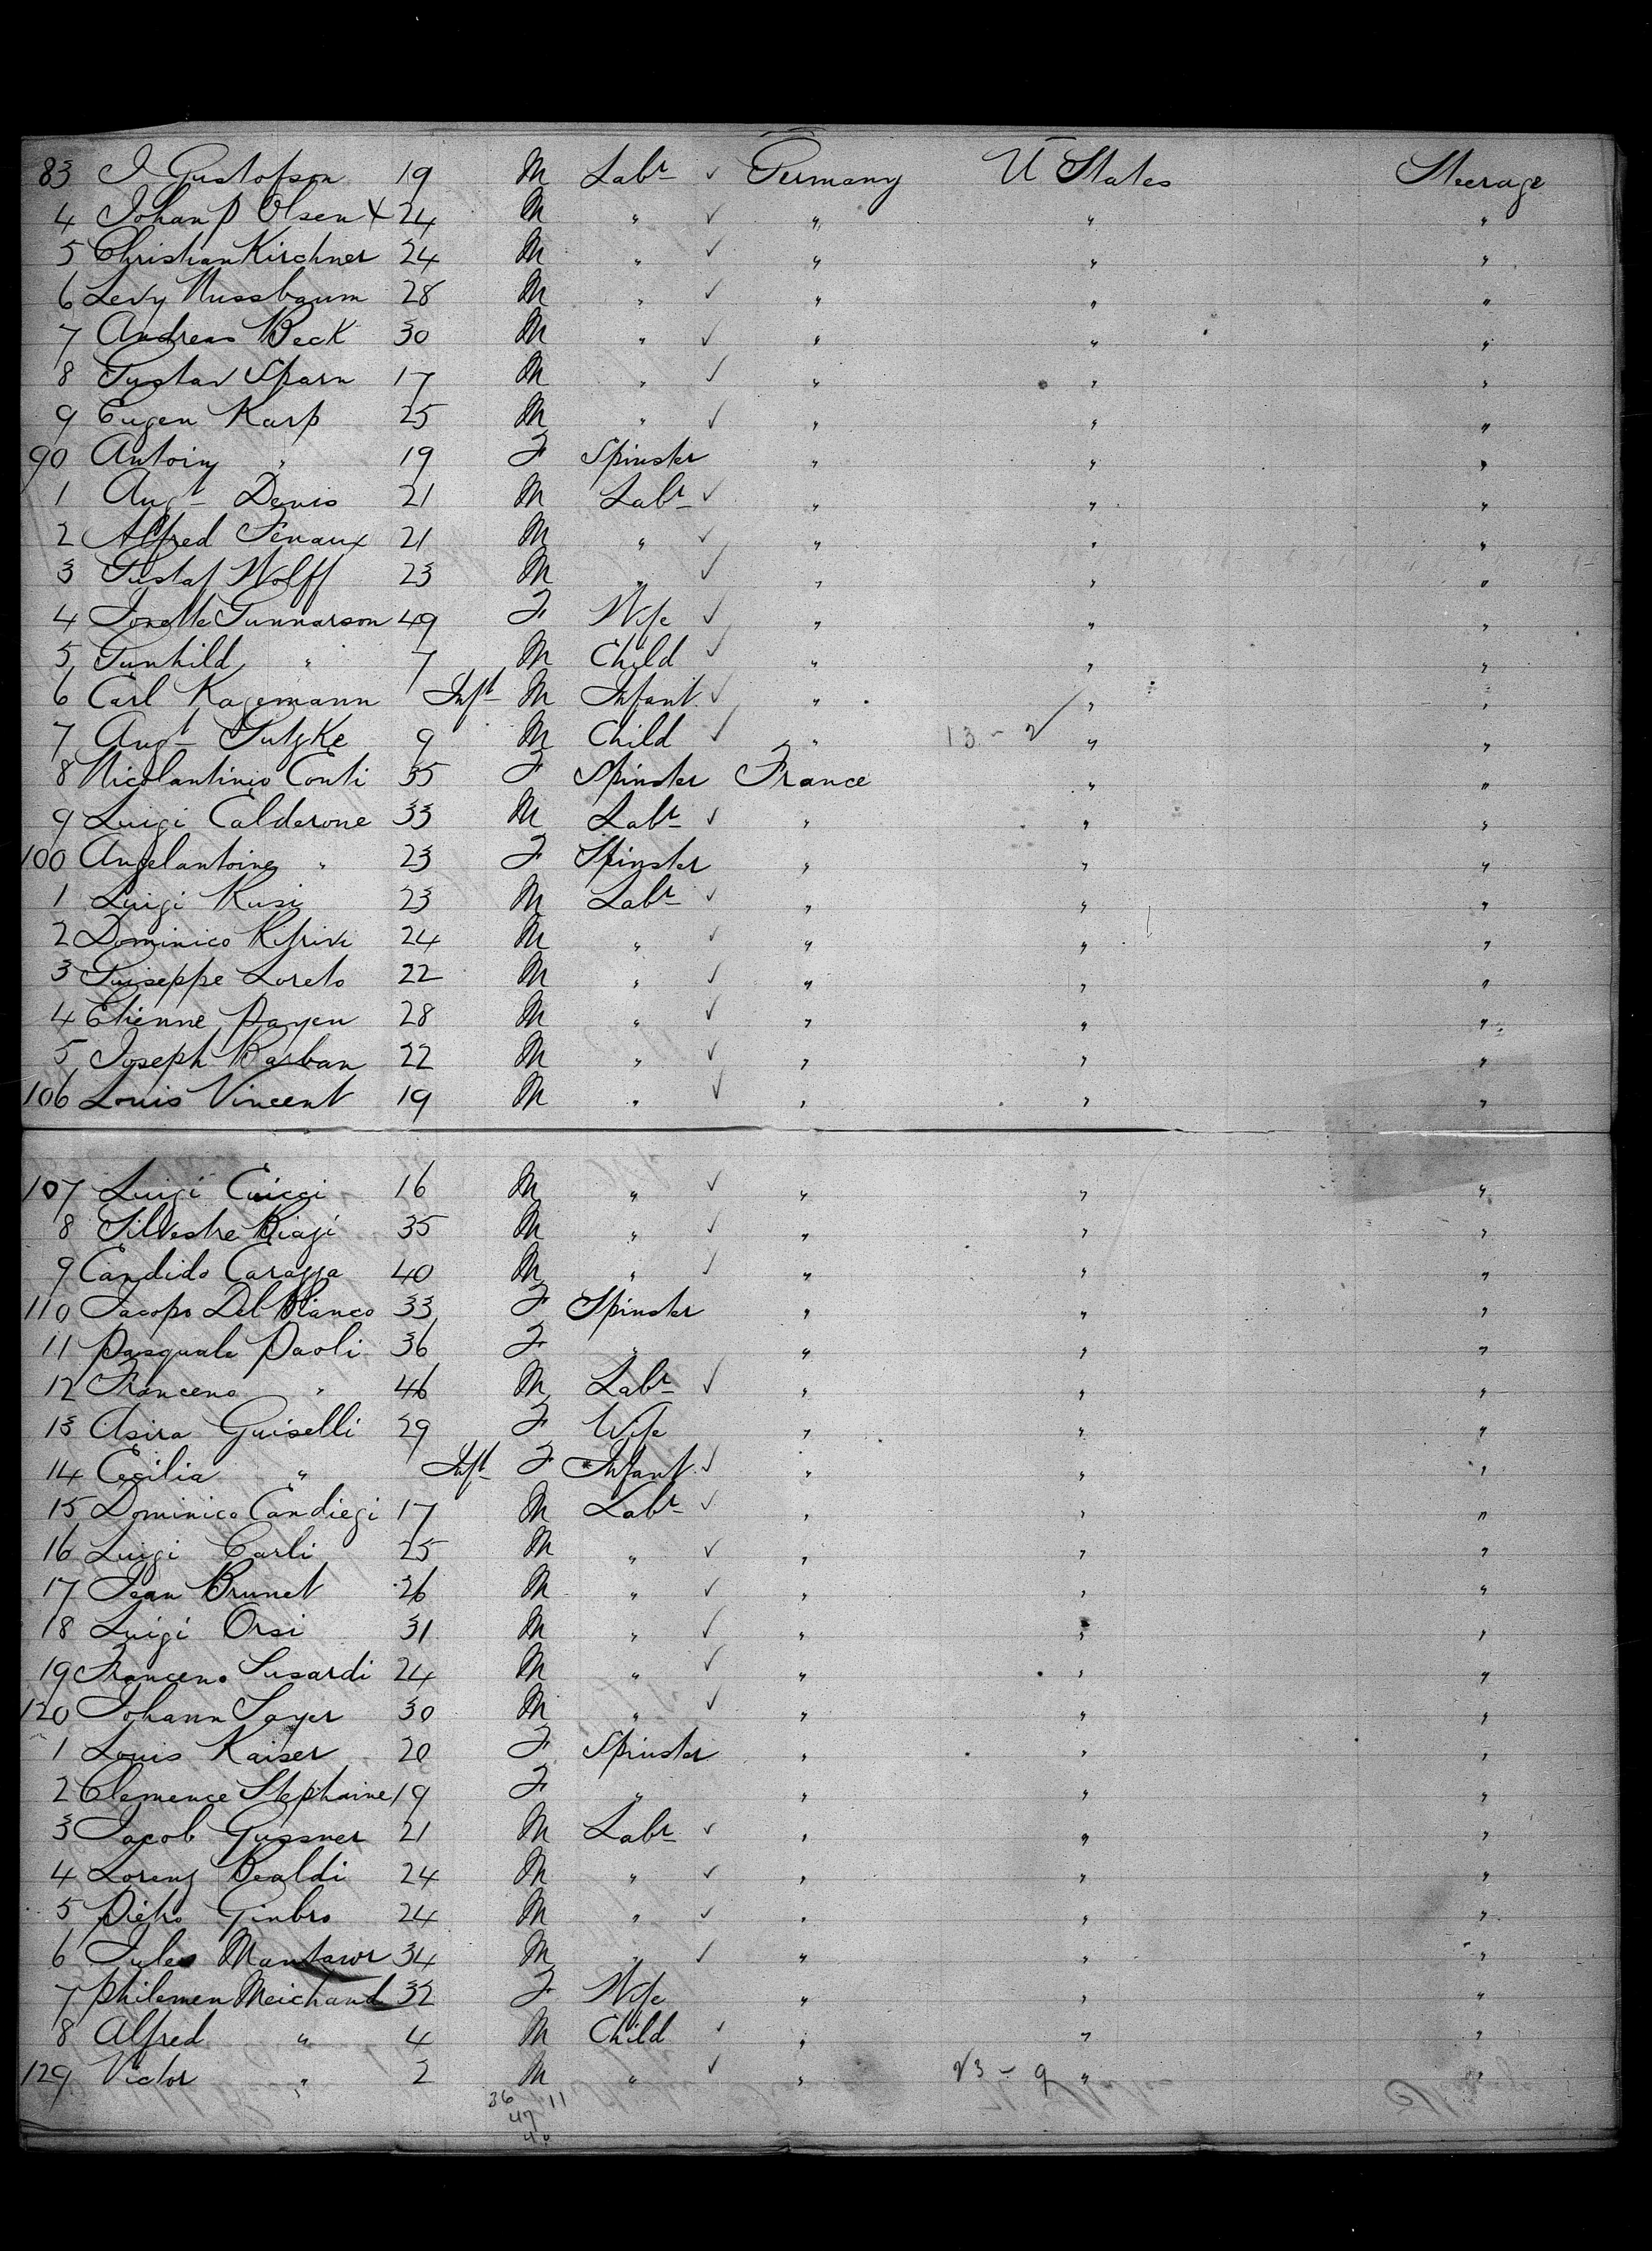 83 J Gustofson 19 M Labr ✓ Germany U States Steerage
4 Johan P Olsen X 24 M " ✓ " " "
5 Christian Kirchner 24 M " ✓ " " "
6 Levy Nussbaum 28 M " ✓ " " "
7 Andreas Beck 30 M " ✓ " " "
8 Gustav Sparn 17 M " ✓ " " "
9 Eugen Karp 25 M " ✓ " " "
90 Antoiny " 19 F Spinster " " "
1 Augt Denis 21 M Labr ✓ " " "
2 Alfred Fenaux 21 M " ✓ " " "
3 Gustaf Wolff 23 M " ✓ " " "
4 Jonette Gunnarson 49 F Wife ✓ " " "
5 Gunhild " 7 M Child ✓ " " "
6 Carl Kagemann Inft M Infant ✓ " " "
7 Augt Gutzke 9 M Child ✓ " 13 - 2 " "
8 Nicolantinio Conti 35 F Spinster France " "
9 Luigi Calderone 33 M Labr ✓ " " "
100 Angelantoine " 23 F Spinster " " "
1 Luigi Rusi 23 M Labr ✓ " " "
2 Dominico 24 M " ✓ " " "
3 Guiseppe Loreto 22 M " ✓ " " "
4 Etienne Payen 28 M " ✓ " " "
5 Joseph Barban 22 M " ✓ " " "
106 Louis Vincent 19 M " ✓ " " "
107 Luigi Cuicci 16 M " ✓ " " "
8 Silvestre Biagi 35 M " ✓ " " "
9 Candido Caragga 40 M " ✓ " " "
110 Jacopo Del Bianco 33 F Spinster " " "
11 Pasquale Paoli 36 F " " " "
12 Franceno " 46 M Labr ✓ " " "
13 Asira Guiselli 29 F Wife " " "
14 Cecilia " Inft F Infant ✓ " " "
15 Dominico Candiegi 17 M Labr ✓ " " "
16 Luigi Carli 25 M " ✓ " " "
17 Jean Brunet 26 M " ✓ " " "
18 Luigi Orsi 31 M " ✓ " " "
19 Franceno Susardi 24 M " ✓ " " "
120 Johann Sayer 30 M " ✓ " " "
1 Louis Kaiser 20 F Spinster " " "
2 Clemence Stephaine 19 F " " " "
3 Jacob Gussner 21 M Labr ✓ " " "
4 Lorenz Bealdi 24 M " ✓ " " "
5 Pietro Ginbro 24 M " ✓ " " "
6 Jules 34 M " ✓ " " "
7 Philemen Meichand 32 F Wife " " "
8 Alfred " 4 M Child ✓ " " "
129 Victor " 2 M " ✓ " 23 - 9 " "
36 11
47